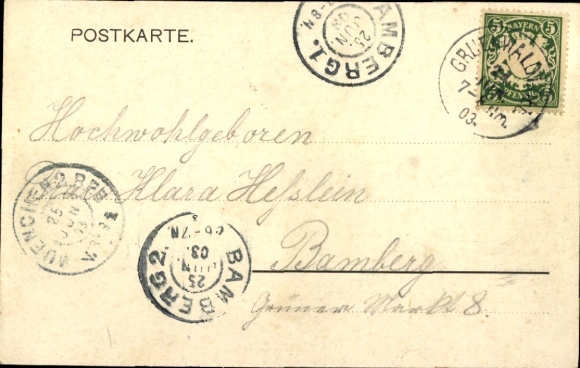 POSTKARTE.
BAMBERG 1.
25
JUN
03
5 BAYERN 5
PFENNIG
GRÜNWALD
7-
03
Hochwohlgeboren
Klara Hesslein
Bamberg
Grüner Markt 8
MUENCHEN
25
JUN
BAMBERG 2
6-7N.
25
JUN
03.